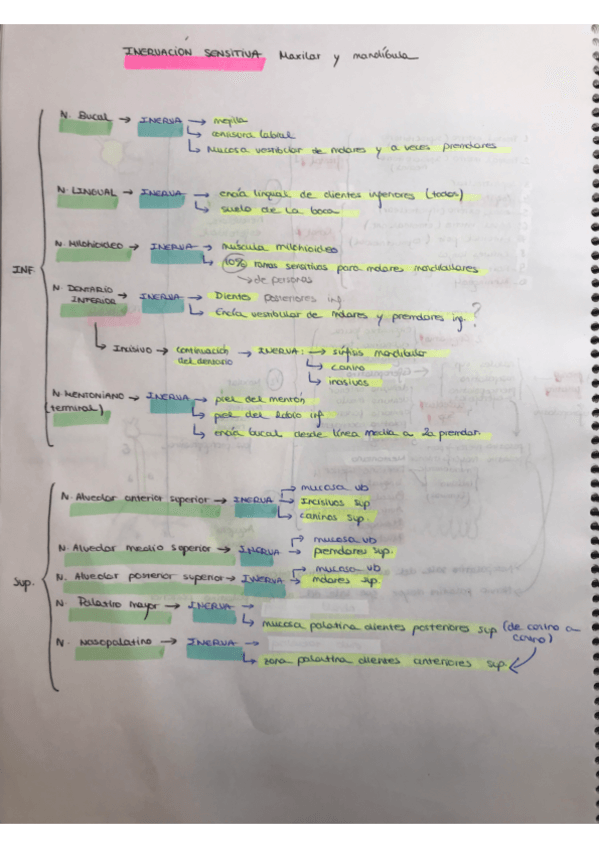 INERVACIÓN SENSITIVA Maxilar y mandíbula
N. Bucal → INERVA → mejilla
↳ comisura labial
↳ Mucosa vestibular de molares y a veces premolares
N. LINGUAL → INERVA → encía lingual de dientes inferiores (todos)
↳ suelo de la boca
N. Milohioideo → INERVA → Músculo milohioideo
↳ 10% ramas sensitivas para molares mandibulares
↳ de personas
INF.
N. DENTARIO INFERIOR → INERVA → Dientes posteriores inf.
↳ Encía vestibular de molares y premolares inf. ?
↳ Incisivo → continuación del dentario → INERVA: → sínfisis mandibular
↳ canino
↳ incisivos
N. MENTONIANO (terminal) → INERVA → piel del mentón
↳ piel del labio inf
↳ encía bucal desde línea media a 2a premolar.
→ mucosa vb
N. Alveolar anterior superior → INERVA → Incisivos sup
↳ caninos sup.
→ mucosa vb
N. Alveolar medio superior → INERVA → premolares sup.
→ mucosa vb
N. Alveolar posterior superior → INERVA → molares sup.
Sup.
N. Palatino mayor → INERVA →
↳ mucosa palatina dientes posteriores sup (de canino a canino)
N. Nasopalatino → INERVA →
↳ zona palatina dientes anteriores sup.